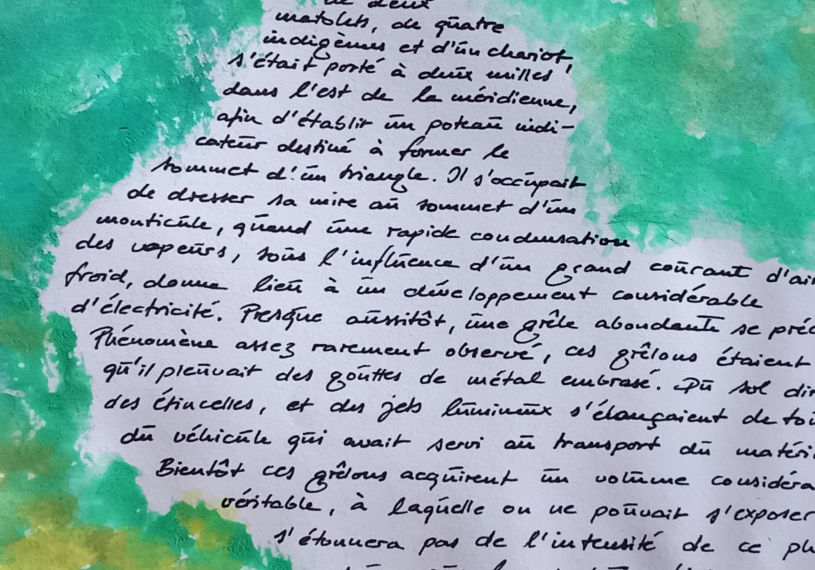 de deux
matelots, de quatre
indigènes et d'un chariot,
s'était porté à deux milles
dans l'est de la méridienne,
afin d'établir un poteau indi-
cateur destiné à former le
sommet d'un triangle. Il s'occupait
de dresser sa mire au sommet d'un
monticule, quand une rapide condensation
des vapeurs, sous l'influence d'un grand courant d'air
froid, donna lieu à un développement considérable
d'électricité. Presque aussitôt, une grêle abondante se préc
Phénomène assez rarement observé, ces grêlons étaient
qu'il pleuvait des gouttes de métal embrasé. Du sol
des étincelles, et des jets lumineux s'élançaient de
du véhicule qui avait servi au transport du matéri
Bientôt ces grêlons acquirent un volume considéra
véritable, à laquelle on ne pouvait s'exposer
s'étonnera pas de l'intensité de ce